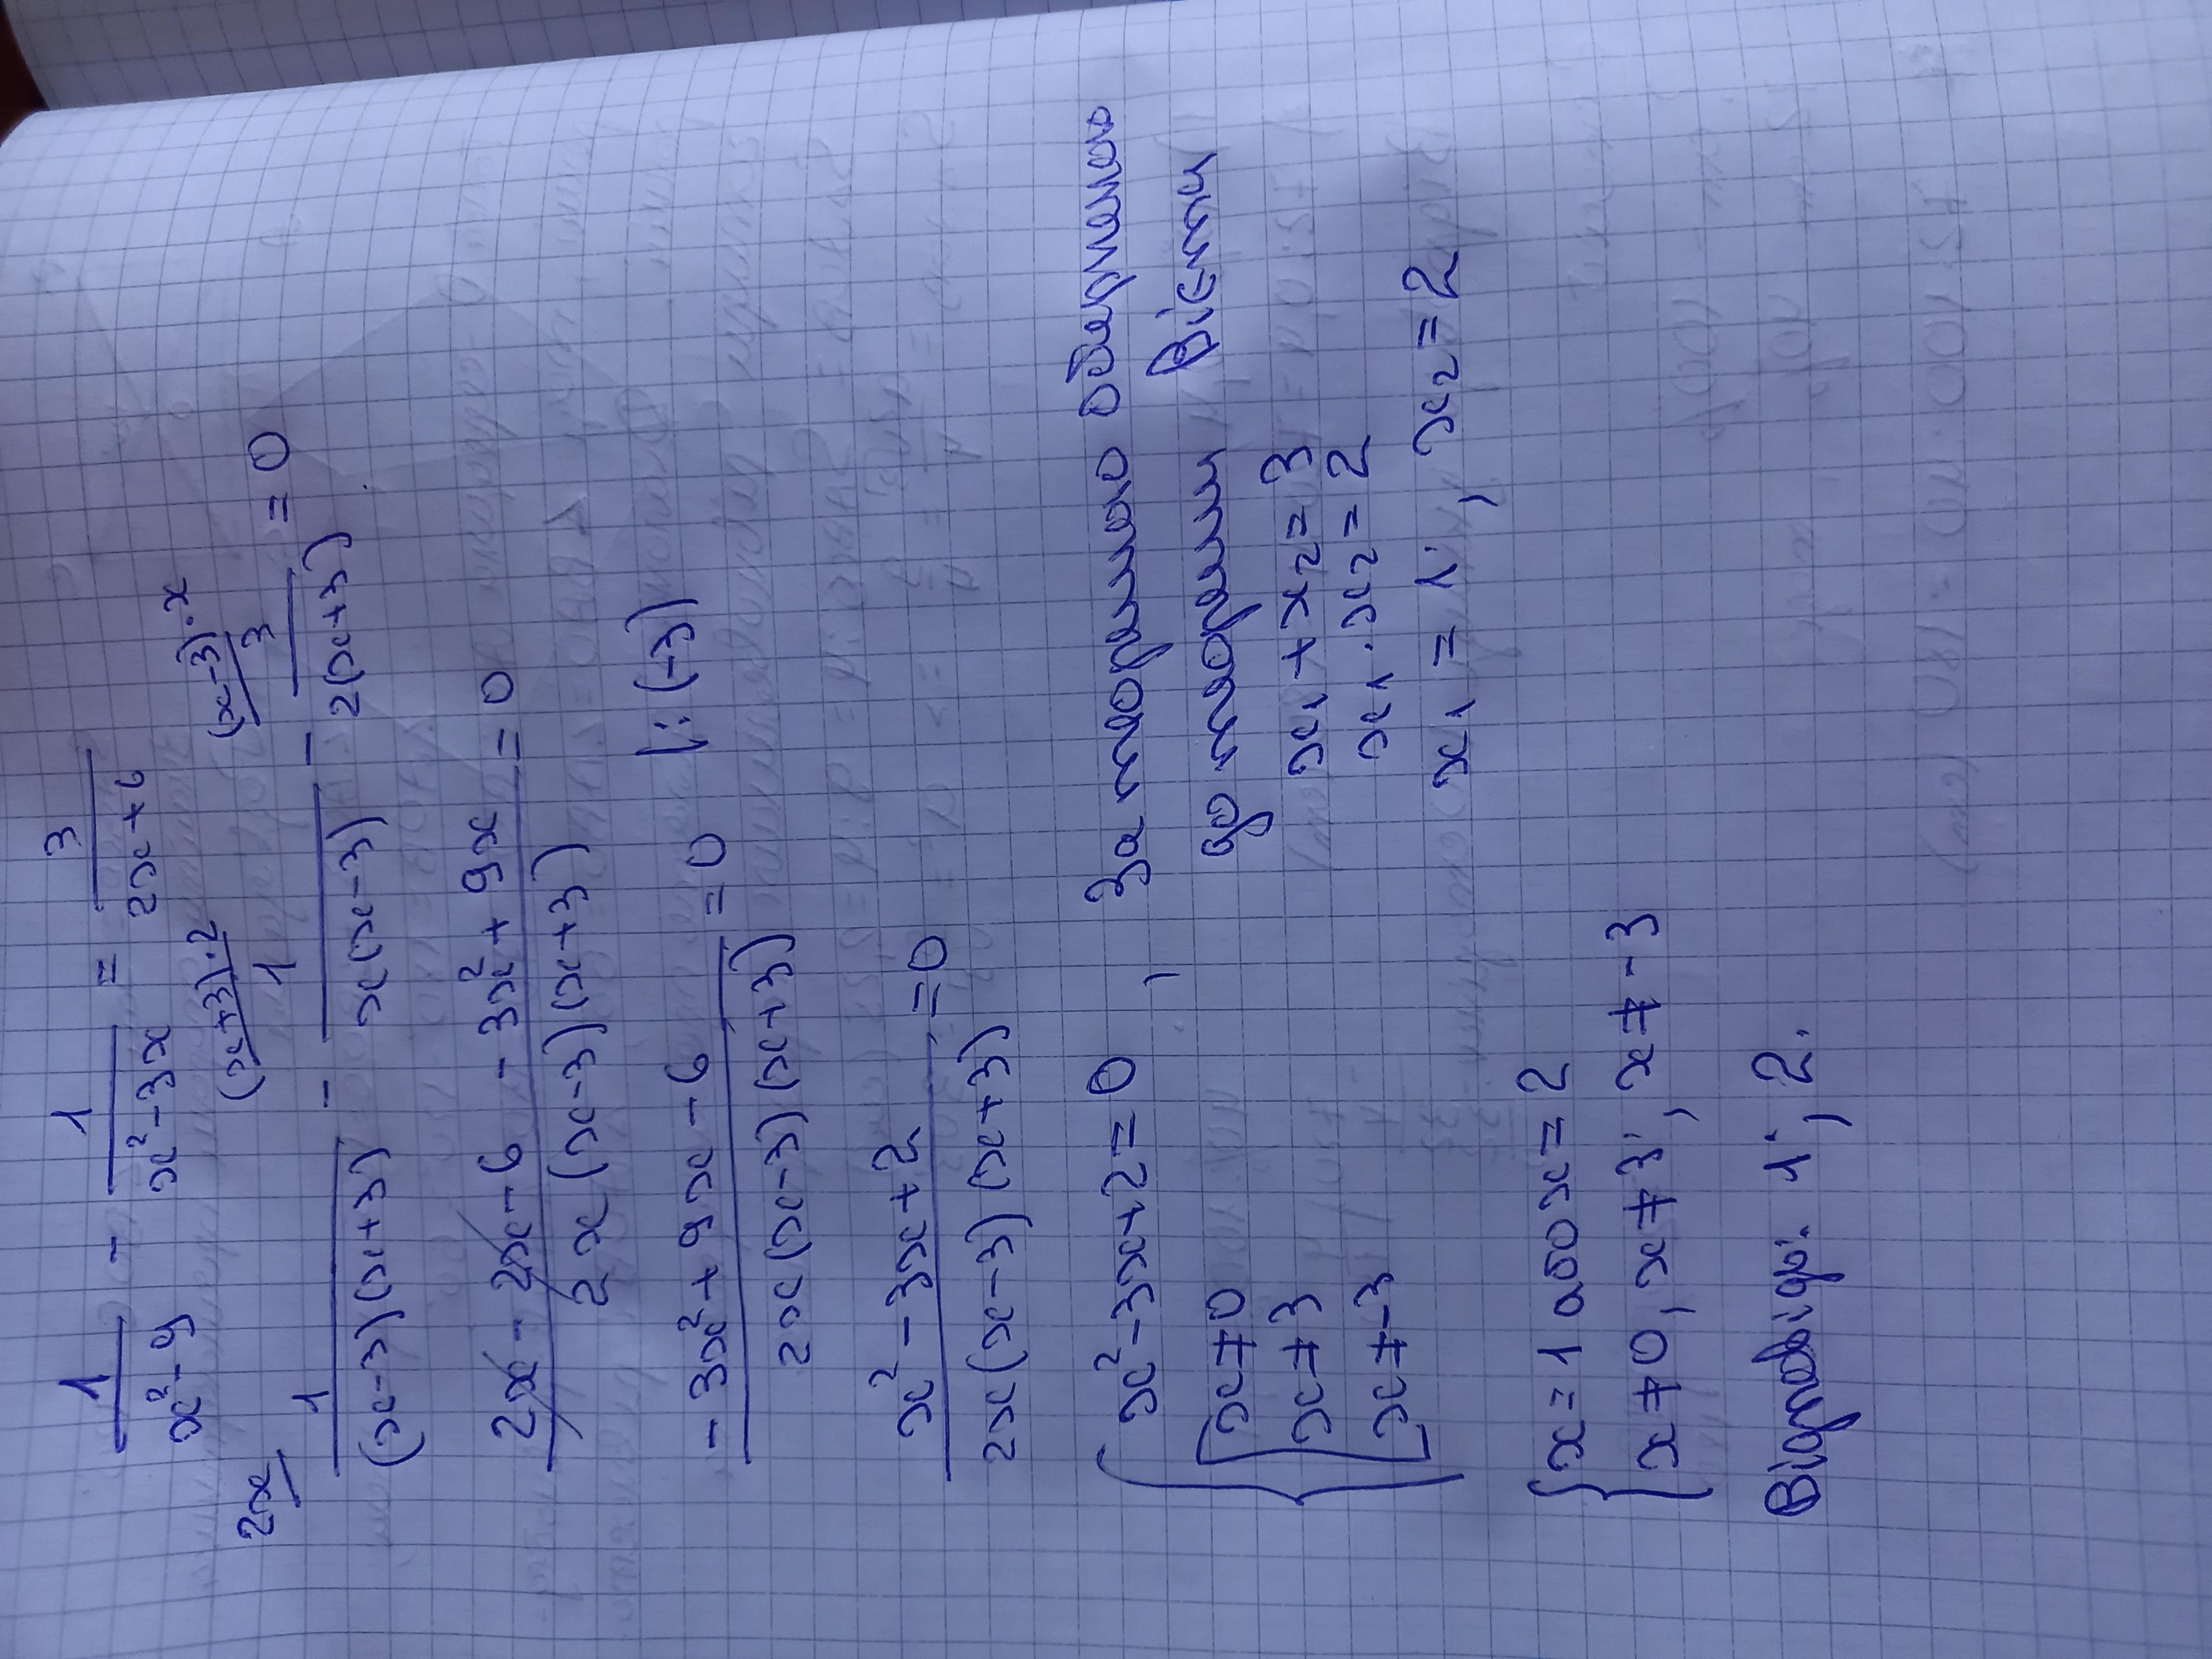 1/(x²-9) - 1/(x²-3x) = 3/(2x+6)
2x/ (x+3)·2/ (x-3)·x/
1/((x-3)(x+3)) - 1/(x(x-3)) - 3/(2(x+3)) = 0
(2x - 2x - 6 - 3x² + 9x)/(2x(x-3)(x+3)) = 0
(-3x² + 9x - 6)/(2x(x-3)(x+3)) = 0 |:(-3)
(x² - 3x + 2)/(2x(x-3)(x+3)) = 0
{ x² - 3x + 2 = 0 , За теоремою оберненою
до теореми Вієтти
[ x ≠ 0 x₁ + x₂ = 3
x ≠ 3 x₁ · x₂ = 2
x ≠ -3 x₁ = 1; x₂ = 2
{ x = 1 або x = 2
x ≠ 0, x ≠ 3; x ≠ -3
Відповідь: 1; 2.